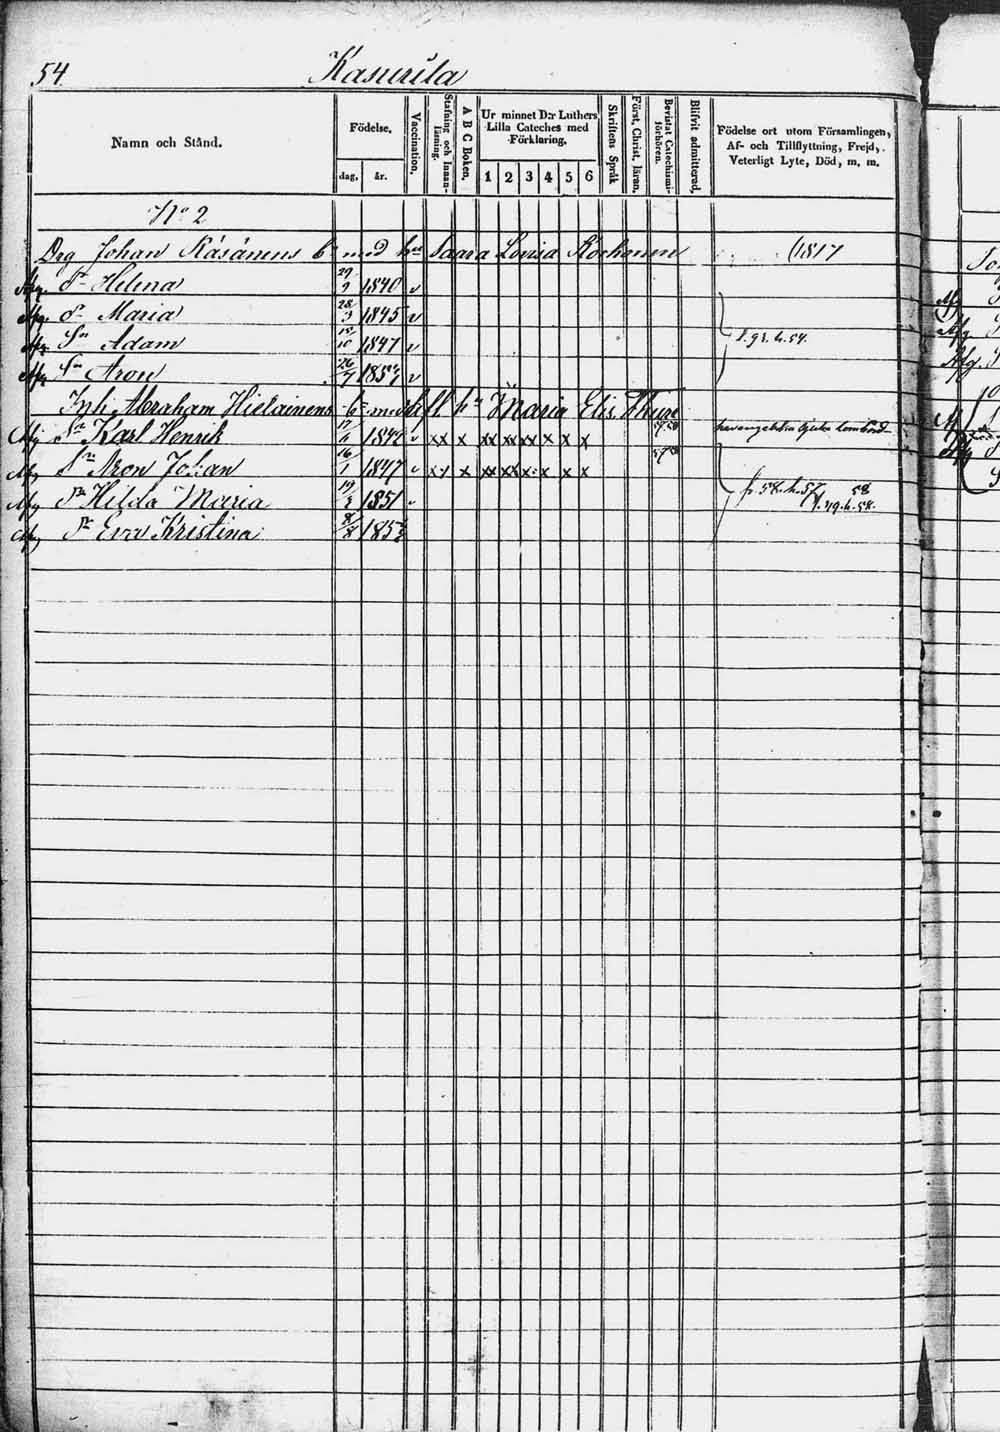 54 Kasurila
Namn och Stånd.
Födelse,
dag, år.
Vaccination,
Stafning och Innanläsning.
A B C Boken,
Ur minnet D:r Luthers Lilla Cateches med Förklaring,
1 2 3 4 5 6
Skriftens Språk
Först. Christ. läran,
Bevistat Catechismiförhören.
Blifvit admitterad,
Födelse ort utom Församlingen, Af- och Tillflyttning, Frejd, Veterligt Lyte, Död, m. m.
No 2
Drg Johan Räsänens b. med hu Saara Lovisa Korhonen 1817
Afg. Dr Helena 29/9 1840 v
Afg. Dr Maria 28/3 1845 v
Afg. Sn Adam 1847 v
Afg. Sn Aron 26/7 v f. 91. h. 54.
Inh. Abraham Hiekainens b. med hu Maria Elis. Thure
Afg Sn Karl Henrik 17/6 v xx x xx xx xx x x x 57 58
Afg Sn Aron Johan 16/1 1847 v xx x xx xx x x x x 57 58
Afg Dr Hilda Maria 19/3 1851 v fr. 58. h. 57 58
Afg Dr Eva Kristina 8/8 f. 49. h. 58.